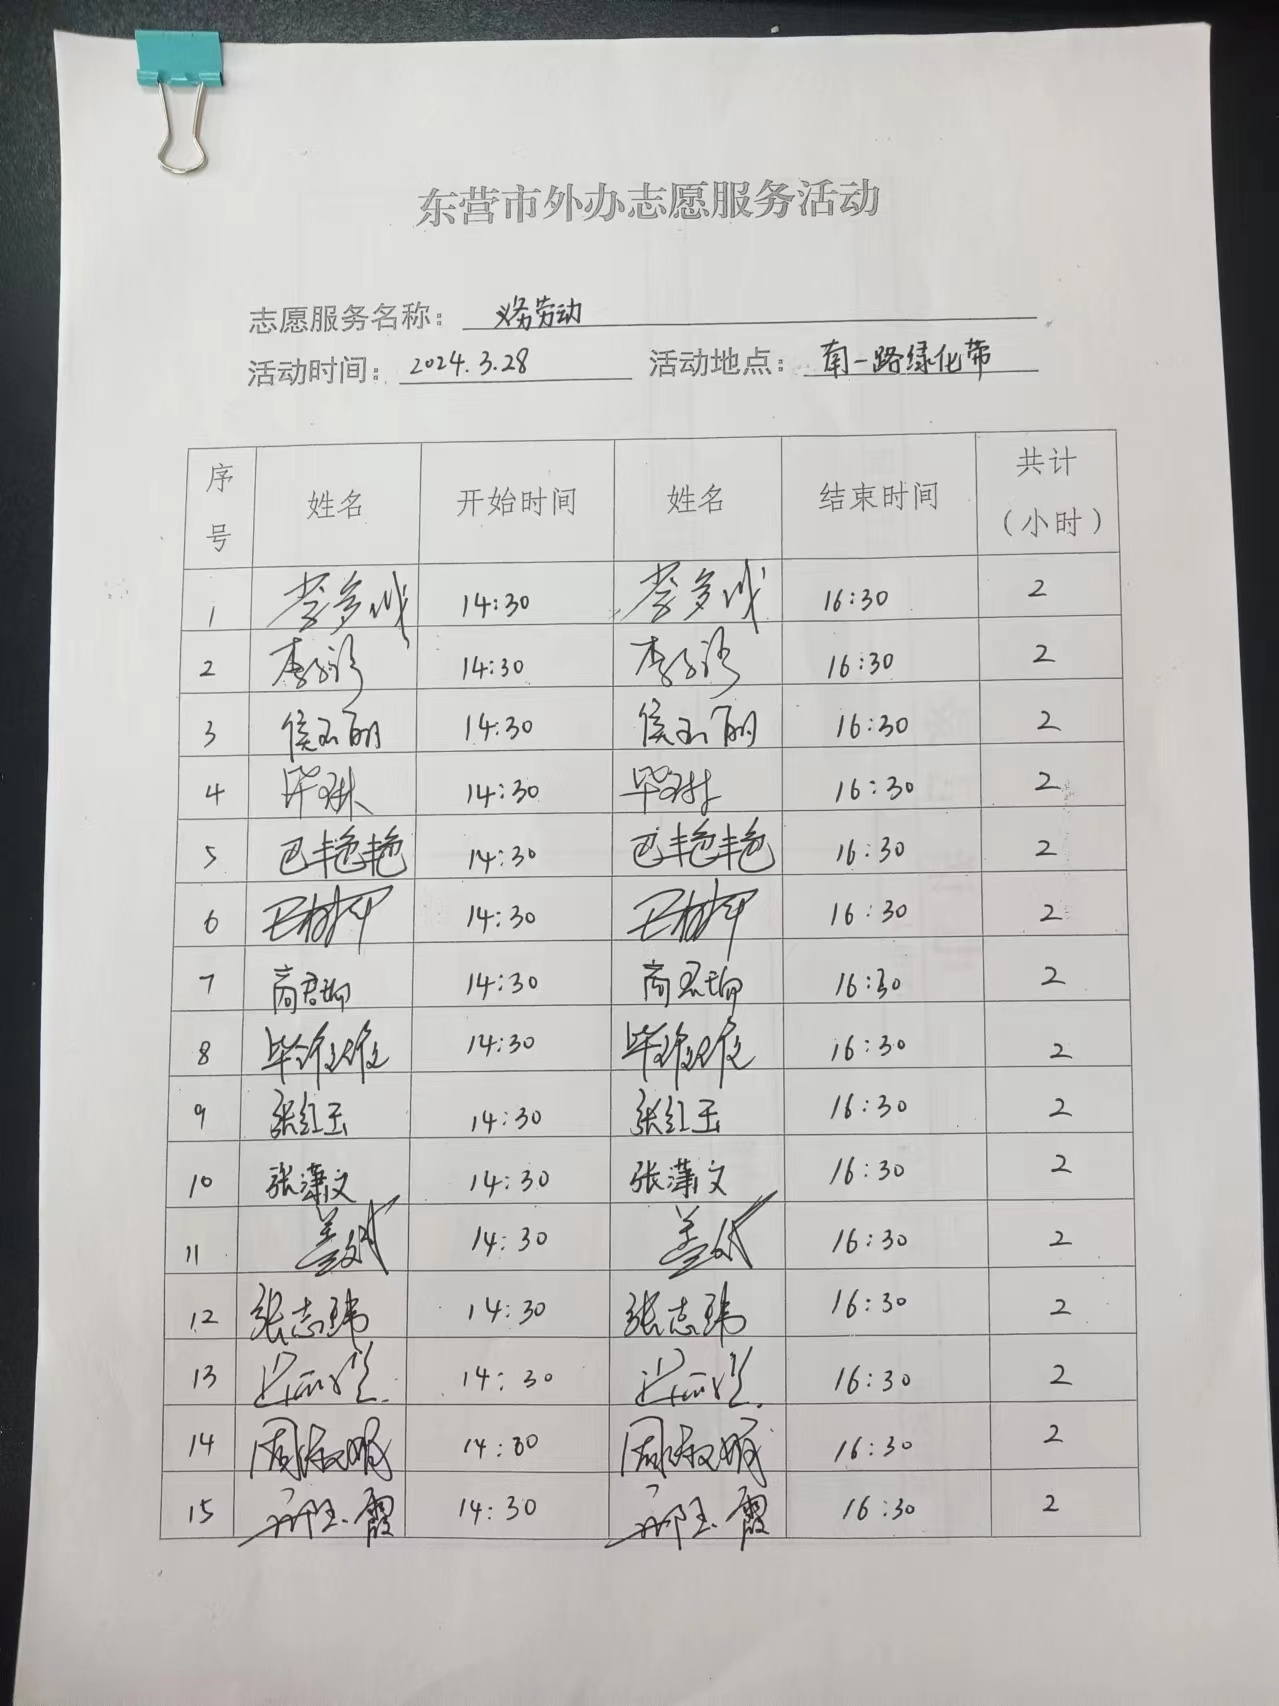 东营市外办志愿服务活动
志愿服务名称： 义务劳动
活动时间： 2024.3.28 活动地点： 南一路绿化带
序号 姓名 开始时间 姓名 结束时间 共计（小时）
1 李多成 14:30 李多成 16:30 2
2 李 14:30 李 16:30 2
3 侯玉丽 14:30 侯玉丽 16:30 2
4 毕琳 14:30 毕琳 16:30 2
5 巴艳艳 14:30 巴艳艳 16:30 2
6 14:30 16:30 2
7 商君珣 14:30 商君珣 16:30 2
8 毕 14:30 毕 16:30 2
9 张红玉 14:30 张红玉 16:30 2
10 张潇文 14:30 张潇文 16:30 2
11 盖斌 14:30 盖斌 16:30 2
12 张志玮 14:30 张志玮 16:30 2
13 14:30 16:30 2
14 周 14:30 周 16:30 2
15 玉霞 14:30 玉霞 16:30 2